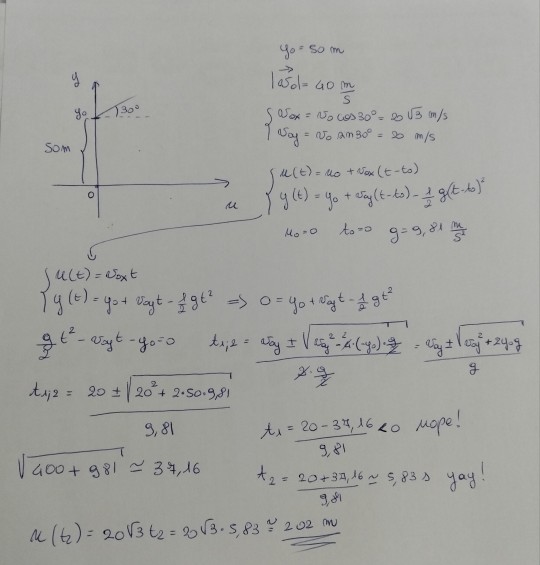 y₀ = 50 m
|v₀| = 40 m/s
v₀x = v₀ cos30° = 20√3 m/s
v₀y = v₀ sin30° = 20 m/s
y
y₀
30°
50m
0
x
x(t) = x₀ + v₀x(t-t₀)
y(t) = y₀ + v₀y(t-t₀) - 1/2 g(t-t₀)²
x₀=0 t₀=0 g=9,81 m/s²
x(t) = v₀x t
y(t) = y₀ + v₀y t - 1/2 gt² ⇒ 0 = y₀ + v₀y t - 1/2 gt²
g/2 t² - v₀y t - y₀ = 0 t₁,₂ = (v₀y ± √(v₀y² - 4·(-y₀)·g/2)) / (2·g/2) = (v₀y ± √(v₀y² + 2y₀g)) / g
t₁,₂ = (20 ± √(20² + 2·50·9,81)) / 9,81
t₁ = (20 - 37,16) / 9,81 < 0 nope!
√(400 + 981) ≃ 37,16
t₂ = (20 + 37,16) / 9,81 ≃ 5,83 s yay!
x(t₂) = 20√3 t₂ = 20√3 · 5,83 ≅ 202 m